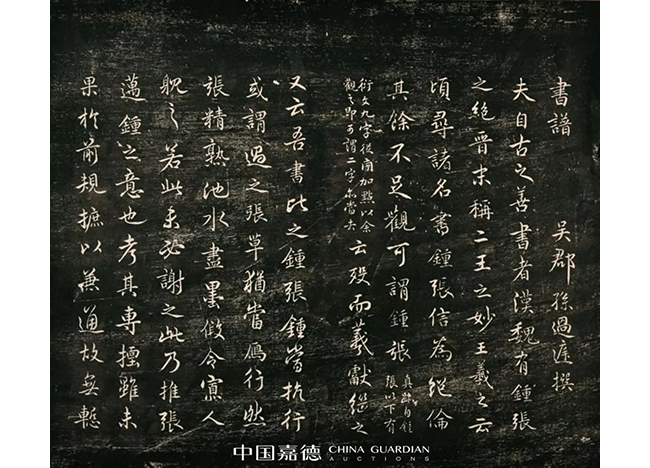 書譜 吳郡孫過庭撰
夫自古之善書者漢魏有鍾張
之絕晉末稱二王之妙王羲之云
頃尋諸名書鍾張信為絕倫
其餘不足觀可謂鍾張
真跡自鍾
張以下有
衍文九字從旁加點以余
觀之即可謂二字亦當去
云歿而羲獻繼之
又云吾書比之鍾張鍾當抗行
或謂過之張草猶當鴈行然
張精熟池水盡墨假令寡人
耽之若此未必謝之此乃推張
邁鍾之意也考其專擅雖未
果於前規摭以兼通故無慙
中国嘉德 CHINA GUARDIAN
AUCTIONS